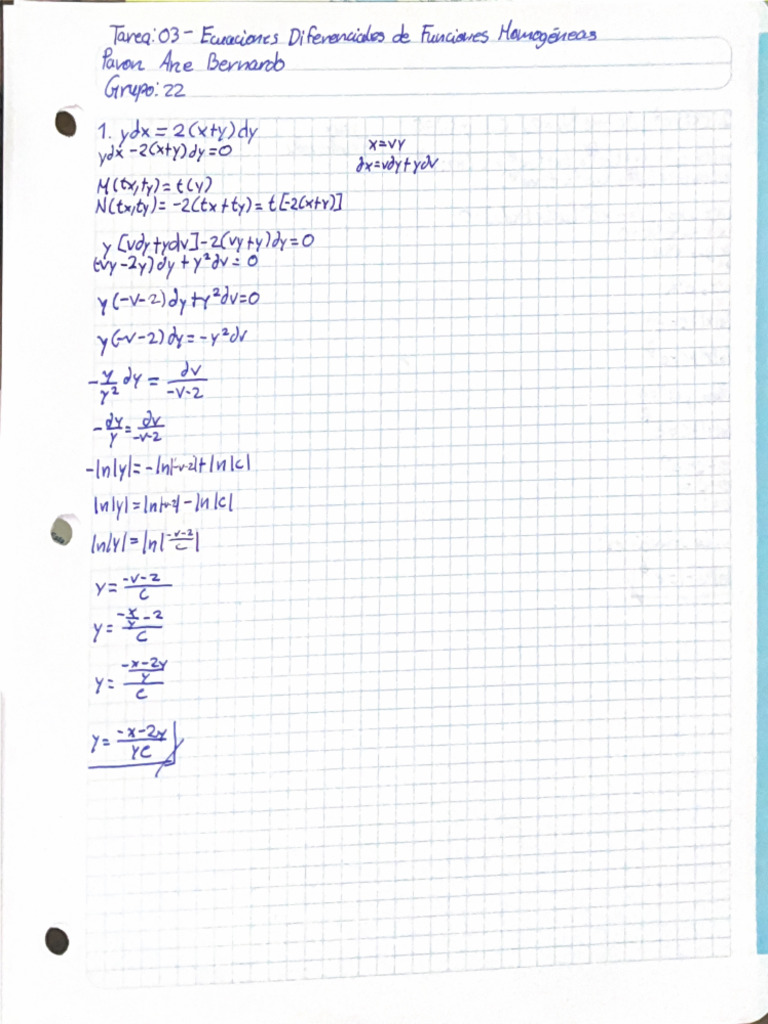 Tarea: 03 - Ecuaciones Diferenciales de Funciones Homogéneas
Pavon Ane Bernardo
Grupo: 22
1. ydx = 2(x+y)dy
ydx - 2(x+y)dy = 0
x = vy
dx = vdy + ydv
M(tx,ty) = t(y)
N(tx,ty) = -2(tx+ty) = t[-2(x+y)]
y[vdy+ydv] - 2(vy+y)dy = 0
(-vy-2y)dy + y²dv = 0
y(-v-2)dy + y²dv = 0
y(-v-2)dy = -y²dv
-y/y² dy = dv/-v-2
-dy/y = dv/-v-2
-ln|y| = -ln|-v-2| + ln|c|
ln|y| = ln|-v-2| - ln|c|
ln|y| = ln|-v-2/c|
y = -v-2/c
y = -x/y-2/c
y = -x-2y/y/c
y = -x-2y/yc